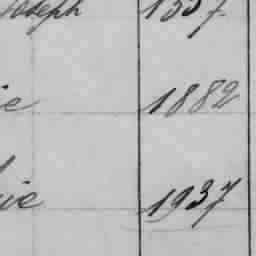 Joseph 1337
ie 1882
ie 1937